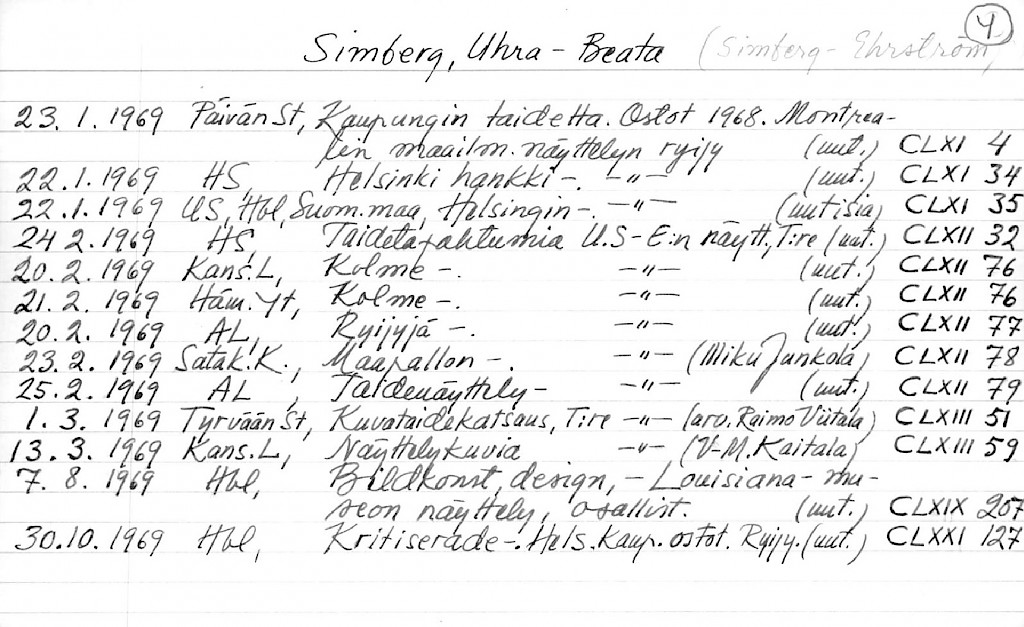 4
Simberg, Uhra - Beata (Simberg - Ehrström,
23. 1. 1969 Päivän St, Kaupungin taidetta. Ostot 1968. Montrea-
lin maailm. näyttelyn ryijy (uut.) CLXI 4
22. 1. 1969 HS, Helsinki hankki -. -"- (uut.) CLXI 34
22. 1. 1969 US, Hbl, Suom. maa, Helsingin -. -"- (uutisia) CLXI 35
24 2. 1969 HS, Taidetapahtumia U.S-E:n näytt., T:re (uut.) CLXII 32
20. 2. 1969 Kans. L, Kolme -. -"- (uut.) CLXII 76
21. 2. 1969 Häm. Yt, Kolme -. -"- (uut.) CLXII 76
20. 2. 1969 AL, Ryijyjä -. -"- (uut.) CLXII 77
23. 2. 1969 Satak. K., Maapallon -. -"- (Miku Junkola) CLXII 78
25. 2. 1969 AL, Taidenäyttely - -"- (uut.) CLXII 79
1. 3. 1969 Tyrvään St, Kuvataidekatsaus, T:re -"- (arv. Raimo Viitala) CLXIII 51
13. 3. 1969 Kans. L, Näyttelykuvia -"- (V-M. Kaitala) CLXIII 59
7. 8. 1969 Hbl, Bildkonst, design, - Louisiana - mu-
seon näyttely, osallist. (uut.) CLXIX 207
30. 10. 1969 Hbl, Kritiserade -. Hels. kaup. ostot. Ryijy. (uut.) CLXXI 127